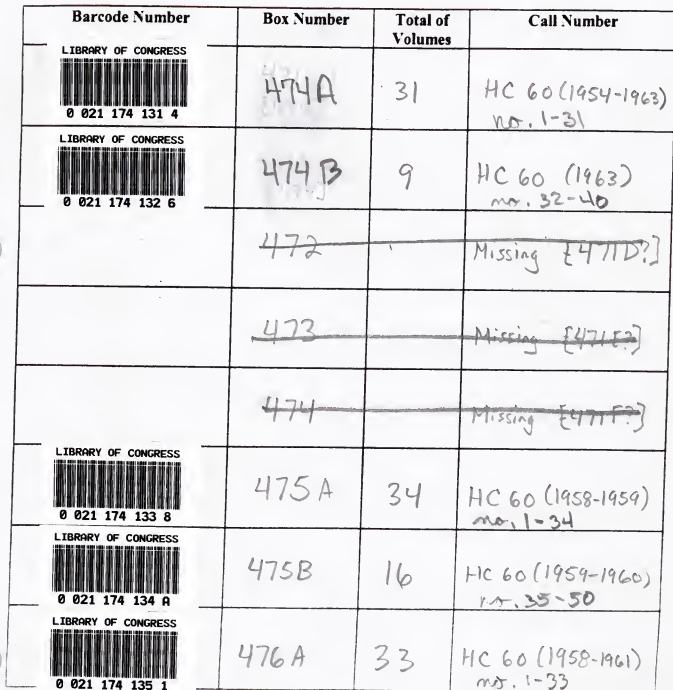 Barcode Number Box Number Total of Volumes Call Number
LIBRARY OF CONGRESS
0 021 174 131 4
474A 31 HC 60 (1954-1963)
no. 1-31
LIBRARY OF CONGRESS
0 021 174 132 6
474 B 9 HC 60 (1963)
no. 32-40
472 Missing [471D?]
473 Missing [471E?]
474 Missing [471F?]
LIBRARY OF CONGRESS
0 021 174 133 8
475 A 34 HC 60 (1958-1959)
no. 1-34
LIBRARY OF CONGRESS
0 021 174 134 A
475B 16 HC 60 (1959-1960)
no. 35-50
LIBRARY OF CONGRESS
0 021 174 135 1
476 A 33 HC 60 (1958-1961)
no. 1-33